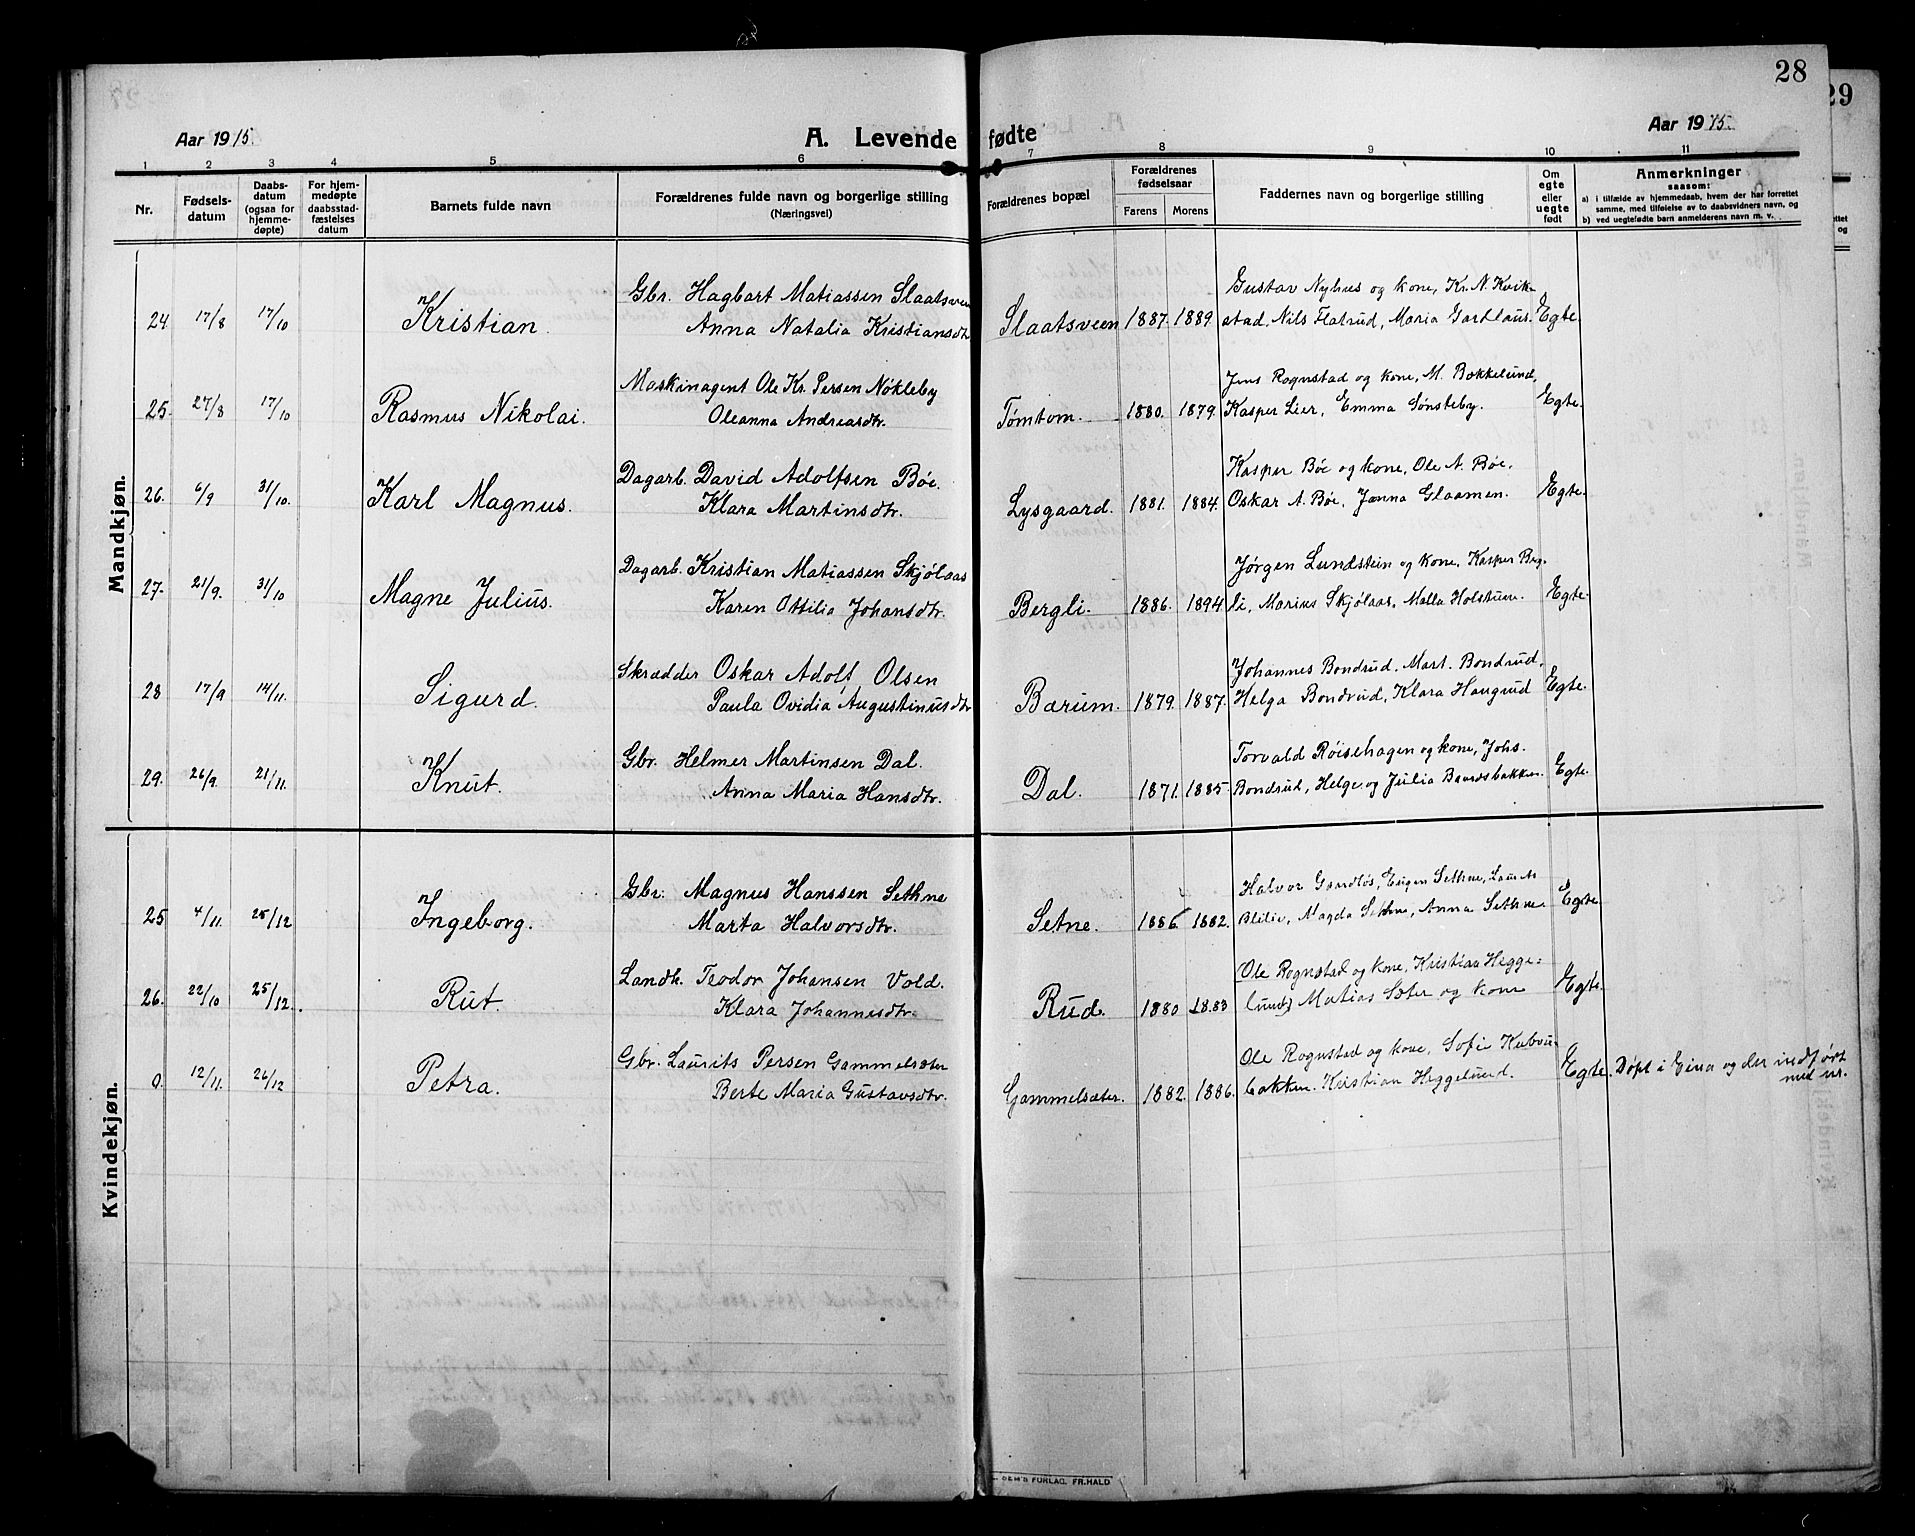 28
29
Aar 1915.
A. Levende fødte
Aar 1915.
1 2 3 4 5 6 7 8 9 10 11
Nr.
Fødsels-
datum
Daabs-
datum
(ogsaa for
hjemme-
døpte)
For hjem-
medøpte
daabsstad-
fæstelses
datum
Barnets fulde navn
Forældrenes fulde navn og borgerlige stilling
(Næringsvei)
Forældrenes bopæl
Forældrenes
fødselsaar
Farens Morens
Faddernes navn og borgerlige stilling
Om
egte
eller
uegte
født
Anmerkninger
saasom:
a) i tilfælde av hjemmedaab, hvem der har forrettet
samme, med tilføielse av to daabsvidners navn, og
b) ved uegtefødte barn anmelderens navn m. v.
Mandkjøn.
24. 17/8 17/10 Kristian. Gbr. Hagbart Matiassen Slaatsveen
Anna Natalia Kristiansdtr
Slaatsveen 1887. 1889 Gustav Nyhus og kone, Kr. N. Kvik-
stad, Nils Flatrud, Maria Gardlaus. Egte.
25. 27/8 17/10 Rasmus Nikolai. Maskinagent Ole Kr. Persen Nøkleby
Oleanna Andreasdtr.
Tømtom. 1880. 1879. Jens Rognstad og kone, M. Bækkelund,
Kasper Lier, Emma Sønsteby. Egte.
26. 6/9 31/10. Karl Magnus. Dagarb. David Adolfsen Bøe.
Klara Martinsdtr.
Lysgaard. 1881. 1884. Kasper Bøe og kone, Ole A. Bøe,
Oskar A. Bøe, Janna Glaamen. Egte.
27. 21/9. 31/10 Magne Julius. Dagarb. Kristian Matiassen Skjølaas
Karen Otilia Johansdtr.
Bergli. 1886. 1894. Jørgen Lundstein og kone, Kasper Berg-
li, Marius Skjølaas, Malla Holstuen. Egte.
28 17/9 14/11. Sigurd. Skrædder Oskar Adolf Olsen
Paula Ovidia Augustinusdtr
Bærum. 1879. 1887. Johannes Bondrud, Mart. Bondrud,
Helga Bondrud, Klara Haugrud Egte.
29. 26/9. 21/11. Knut. Gbr. Helmer Martinsen Dal.
Anna Maria Hansdtr.
Dal. 1871. 1885. Torvald Røisehagen og kone, Johs.
Bondrud, Helge og Julia Baardsbakken. Egte.
Kvindekjøn.
25 4/11. 25/12 Ingeborg. Gbr. Magnus Hanssen Sethne
Marta Halvorsdtr.
Setne. 1886 1882. Halvor Gaardløs, Eugen Sethne,
Blilie, Magda Sethne, Anna Sethne Egte
26. 22/10 25/12. Rut. Landh. Teodor Johansen Vold.
Klara Johannesdtr.
Rud. 1880 1883 Ole Rognstad og kone, Kristian Hegge-
lund, Matias Sæter og kone Egte.
0. 12/11. 26/12 Petra. Gbr. Laurits Persen Gammelsæter
Berte Maria Gustavsdtr.
Gammelsæter. 1882. 1886. Ole Rognstad og kone, Sofie Kubru-
bakken. Kristian Heggelund. Egte. Døpt i Eina og der indført
med nr.
SEM'S FORLAG, FR.HALD